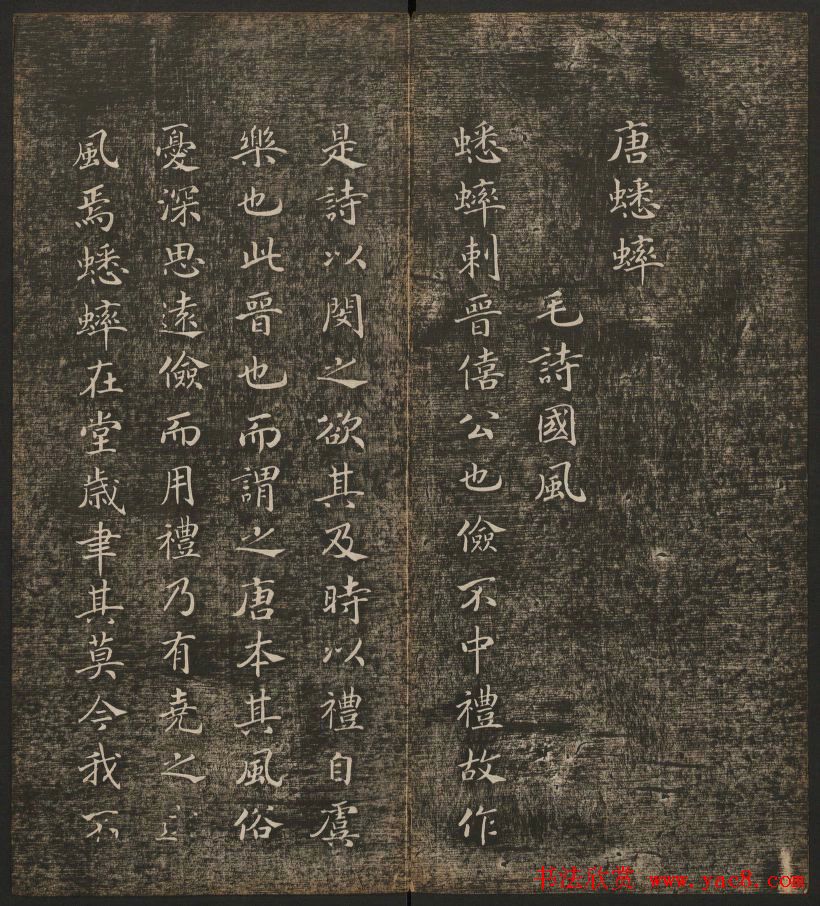 唐蟋蟀
毛詩國風
蟋蟀刺晉僖公也儉不中禮故作
是詩以閔之欲其及時以禮自虞
樂也此晉也而謂之唐本其風俗
憂深思遠儉而用禮乃有堯之
風焉蟋蟀在堂歲聿其莫今我不
书法欣赏 www.yac8.com